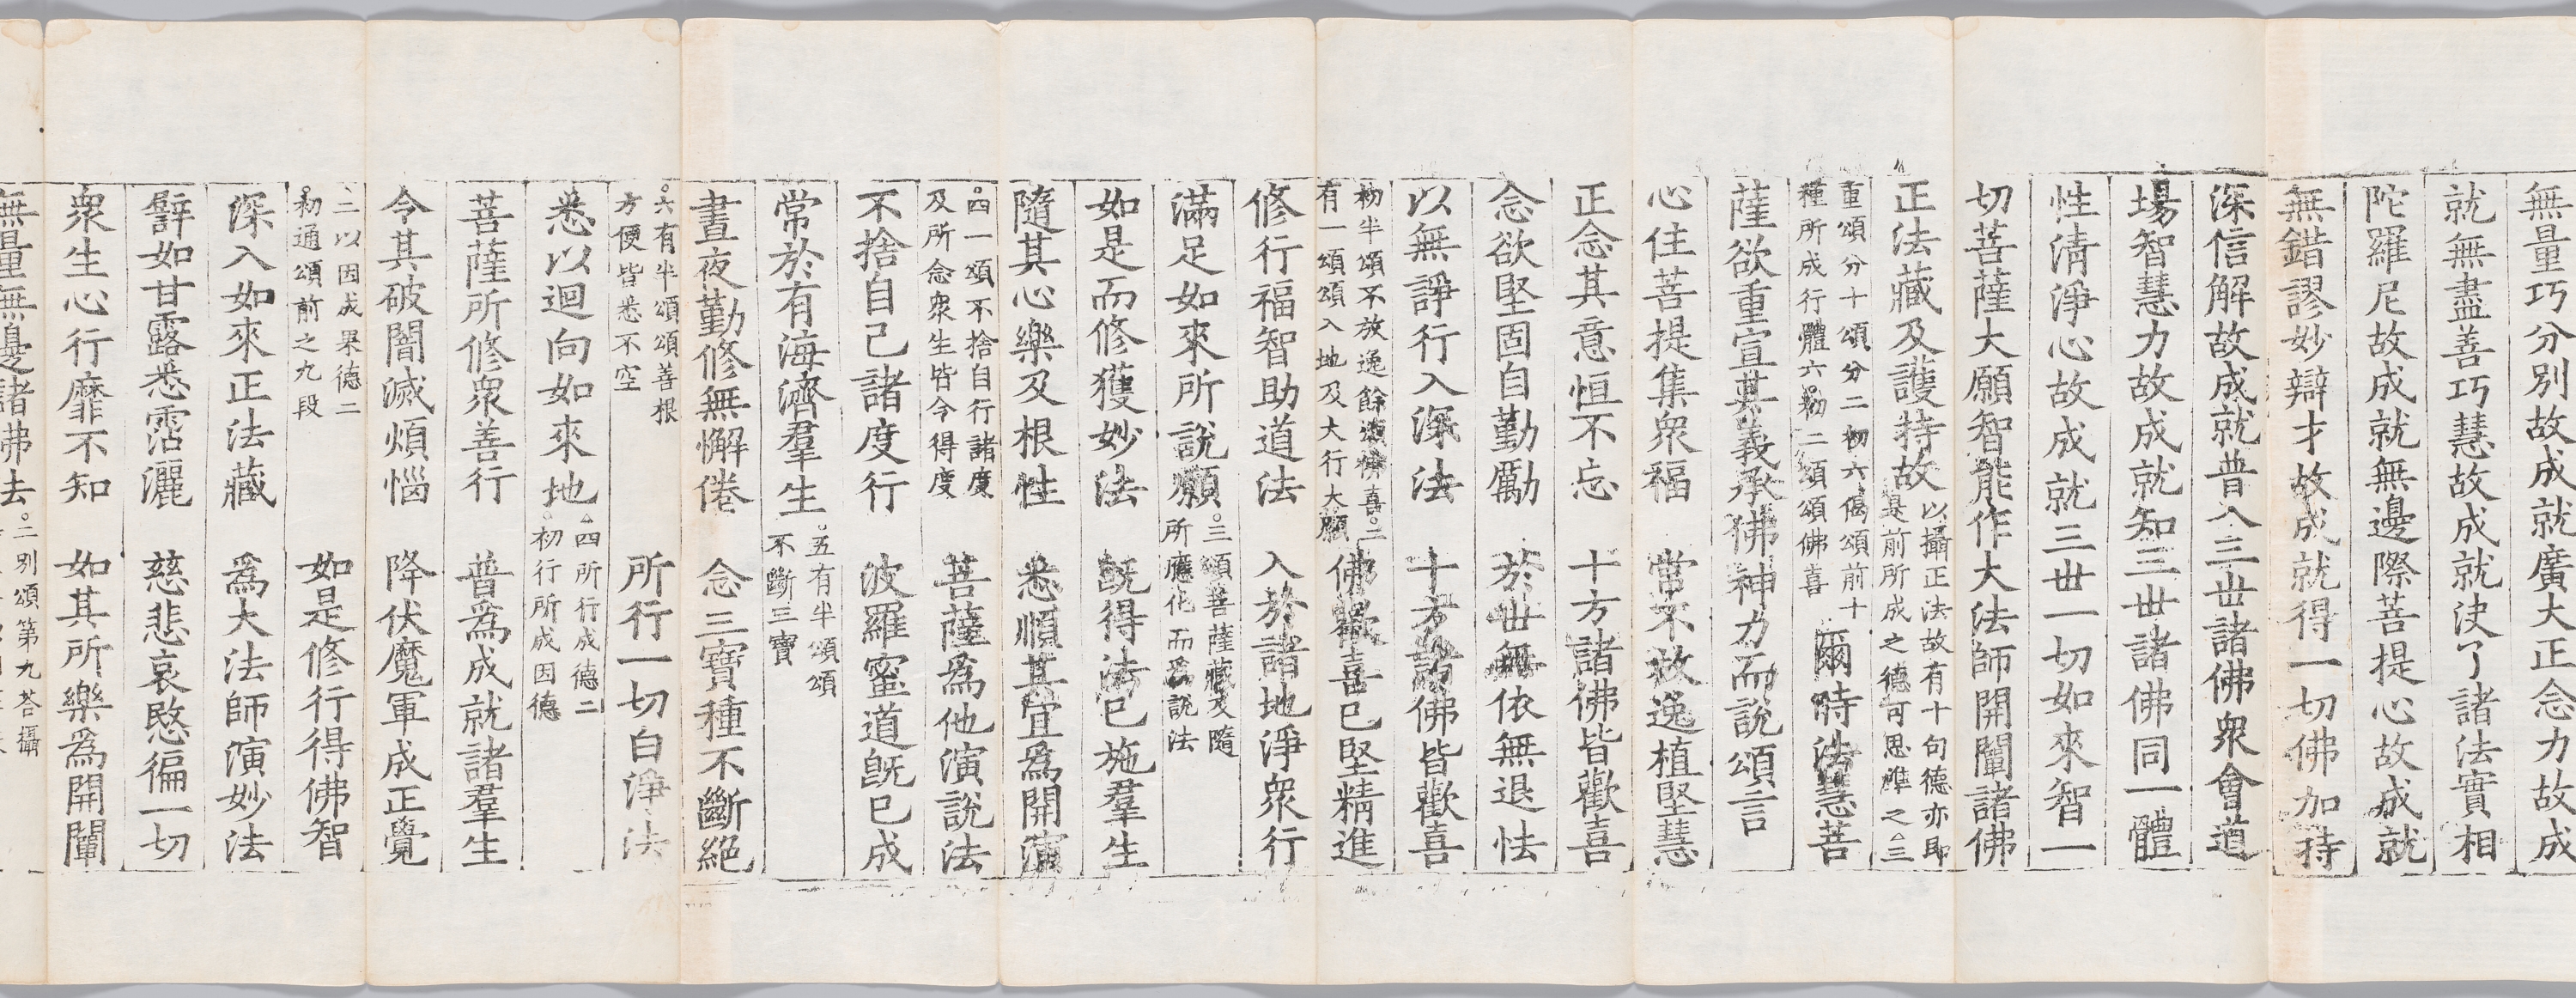 無量巧分別故成就廣大正念力故成
就無盡善巧慧故成就決了諸法實相
陀羅尼故成就無邊際菩提心故成就
無錯謬妙辯才故成就得一切佛加持
深信解故成就普入三世諸佛衆會道
場智慧力故成就知三世諸佛同一體
性清淨心故成就三世一切如來智一
切菩薩大願智能作大法師開闡諸佛
正法藏及護持故
以攝正法故有十句德亦即
是前所成之德可思準之三
重頌分十頌分二初六偈頌前十
種所成行體六初二頌頌佛喜
爾時法慧菩
薩欲重宣其義承佛神力而說頌言
心住菩提集衆福 當不放逸植堅慧
正念其意恒不忘 十方諸佛皆歡喜
念欲堅固自勤勵 於世無依無退怯
以無諍行入深法 十方諸佛皆歡喜
初半頌不放逸餘頌佛喜二
有一頌頌入地及大行大願
佛歡喜已堅精進
修行福智助道法 入於諸地淨衆行
滿足如來所說願
三頌菩薩藏及隨
所應化而爲說法
如是而修獲妙法 旣得法已施羣生
隨其心樂及根性 悉順其宜爲開演
四一頌不捨自行諸度
及所念衆生皆令得度
菩薩爲他演說法
不捨自己諸度行 波羅蜜道旣已成
常於有海濟羣生
五有半頌頌
不斷三寶
晝夜勤修無懈倦 念三寶種不斷絕
六有半頌頌善根
方便皆悉不空
所行一切白淨法
悉以迴向如來地
四所行成德二
初行所成因德
菩薩所修衆善行 普爲成就諸羣生
令其破闇滅煩惱 降伏魔軍成正覺
二以因成果德二
初通頌前之九段
如是修行得佛智
深入如來正法藏 爲大法師演妙法
譬如甘露悉霑灑 慈悲哀愍徧一切
衆生心行靡不知 如其所樂爲開闡
無量無邊諸佛去
二別頌第九荅攝